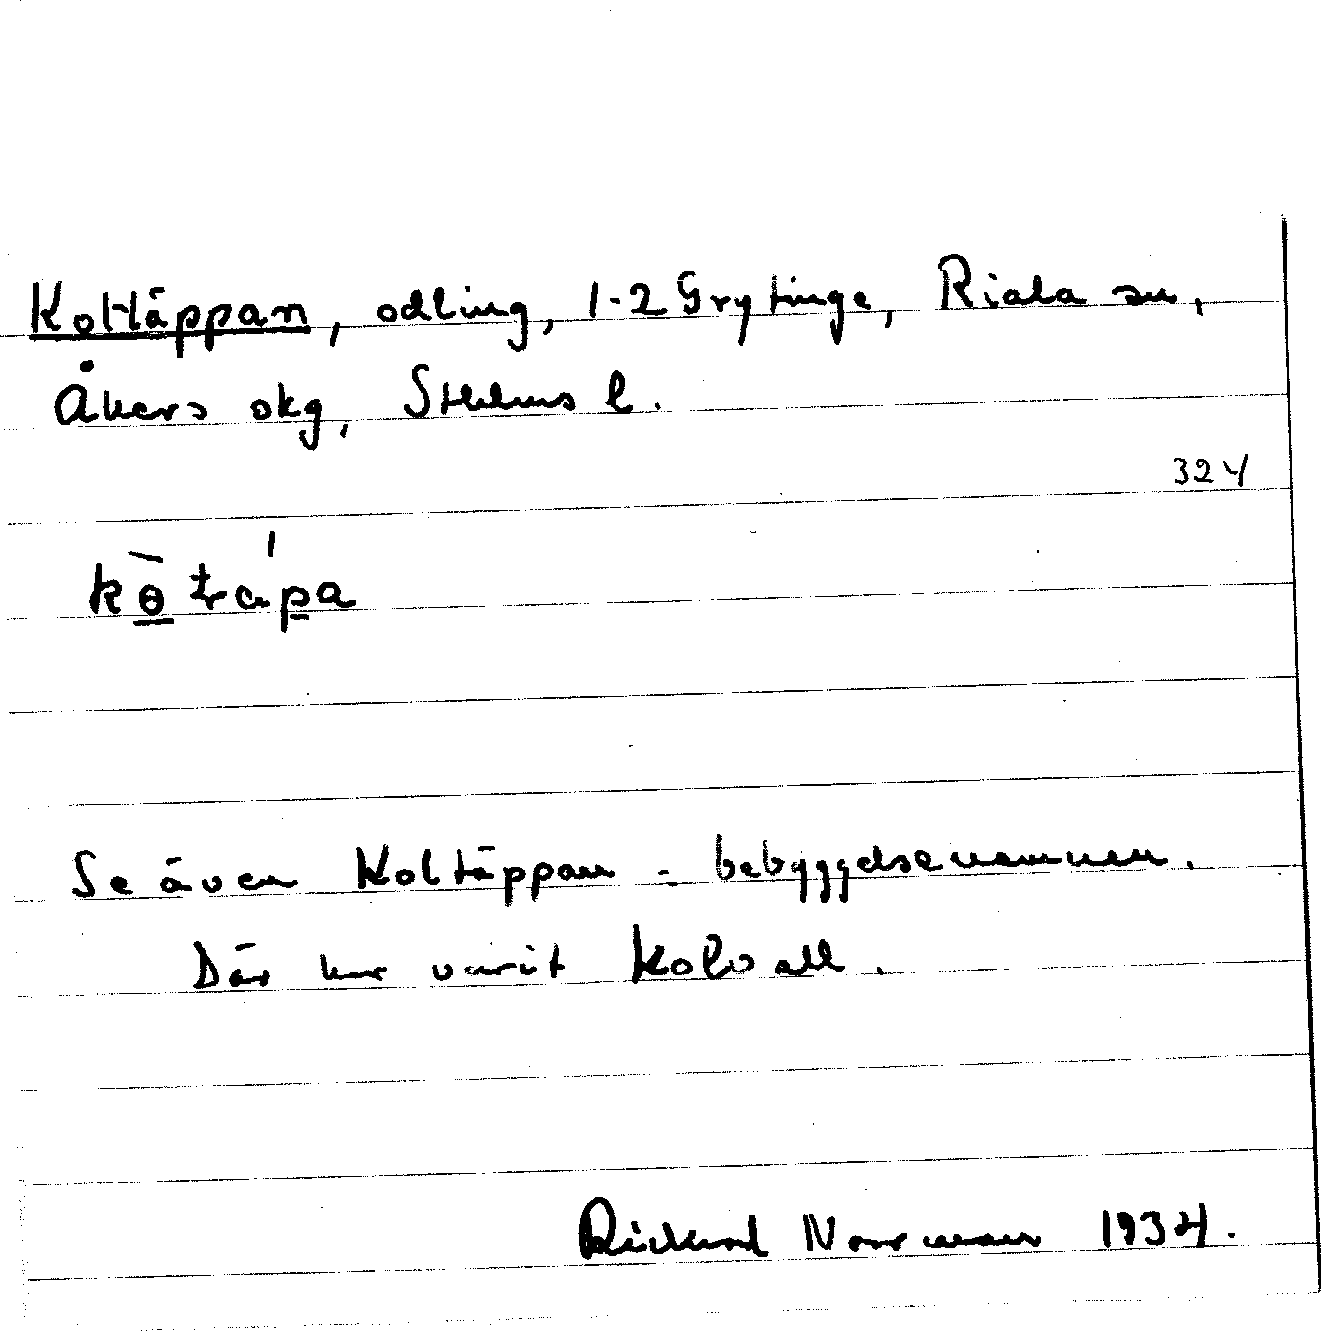 Koltäppan, odling, 1-2 Grytinge, Riala sn,
Åkers skg, Sthlms l.
324
Se även Koltäppan - bebyggelsenamnen.
Där har varit kolvall.
Rickard Norrman 1934.